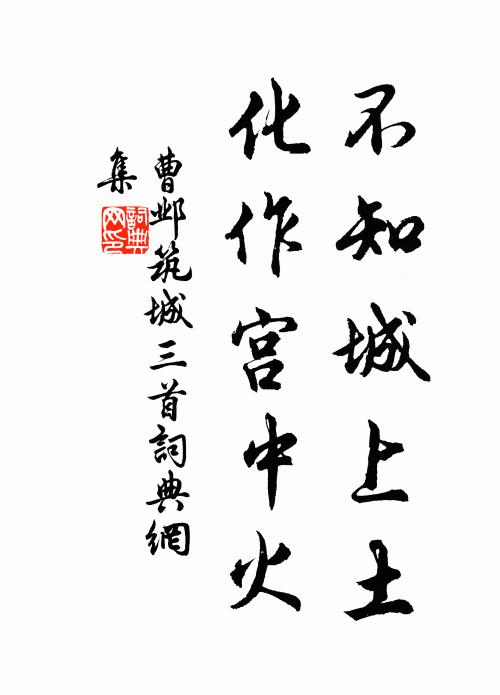 不知城上土
化作宫中火
曹邺筑城三首詞典網
集
詞典
网印